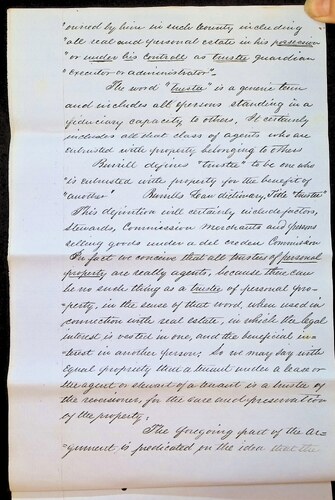 "owned by him in such County including
"all real and personal estate in his possession
"or under his controll as trustee guardian
"executor or administrator".
The word "trustee" is a generic term
and includes all persons standing in a
fiduciary capacity to others. It certainly
includes all that class of agents who are
entrusted with property belonging to others
Burrill defines "trustee" to be one who
"is entrusted with property for the benefit of
"another" Burrills Law dictionary, Title "trustee"
This definition will certainly include factors,
Stewards, Commission Merchants and persons
selling goods under a del credere Commission
In fact we conceive that all trustees of personal
property are really agents, because there can
be no such thing as a trustee of personal pro-
-perty, in the sense of that word, when used in
connection with real estate, in which the legal
interest is vested in one, and the beneficial in-
-terest in another person; So we may say with
equal propriety that a tenant under a lease or
the agent or stewart of a tenant is a trustee of
the reversioner, for the care and preservation
of the property.
The foregoing part of the ar-
-gument is predicated on the idea that the